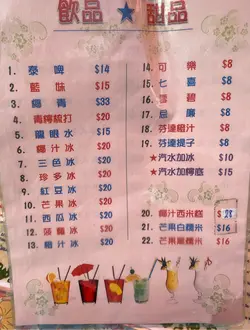 飲品 ★ 甜品
1. 泰啤 $14
2. 藍妹 $15
3. 白酒 $33
4. 青檸梳打 $20
5. 龍眼水 $15
6. 椰汁冰 $20
7. 三色冰 $20
8. 珍多冰 $20
9. 紅豆冰 $20
10. 芒果冰 $20
11. 西瓜冰 $20
12. 菠蘿冰 $20
13. 椰汁冰 $20
14. 可樂 $8
15. 七喜 $8
16. 雪碧 $8
17. 忌廉 $8
18. 芬達橙汁 $8
19. 芬達提子 $8
★汽水加冰 $10
★汽水加檸底 $15
20. 椰汁西米糕
21. 芒果白糯米 $16
22. 芒果黑糯米 $16